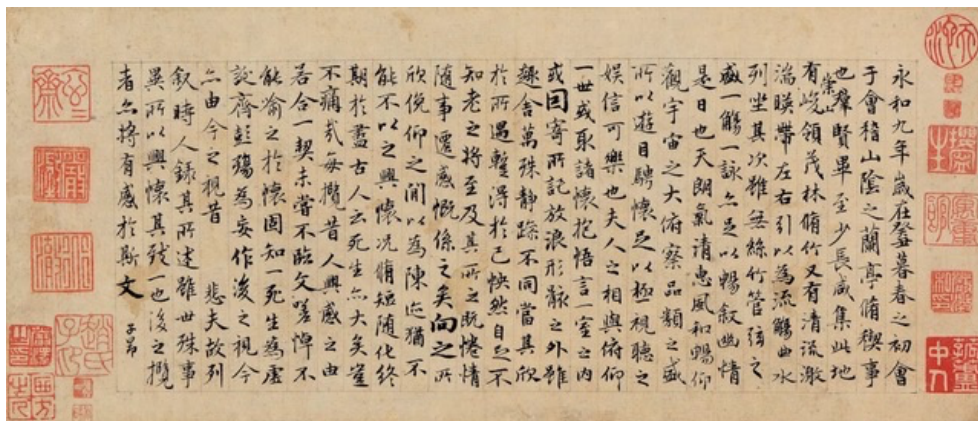 永和九年歲在癸暮春之初會
于會稽山陰之蘭亭脩禊事
也羣賢畢至少長咸集此地
有崇峻領茂林脩竹又有清流激
湍暎帶左右引以為流觴曲水
列坐其次雖無絲竹管弦之
盛一觴一詠亦足以暢敘幽情
是日也天朗氣清惠風和暢仰
觀宇宙之大俯察品類之盛
所以遊目騁懷足以極視聽之
娛信可樂也夫人之相與俯仰
一世或取諸懷抱悟言一室之內
或因寄所託放浪形骸之外雖
趣舍萬殊靜躁不同當其欣
於所遇蹔得於己怏然自足不
知老之將至及其所之既惓情
隨事遷感慨係之矣向之所
欣俛仰之間以為陳迹猶不
能不以之興懷況脩短隨化終
期於盡古人云死生亦大矣豈
不痛哉每攬昔人興感之由
若合一契未嘗不臨文嗟悼不
能喻之於懷固知一死生為虛
誕齊彭殤為妄作後之視今
亦由今之視昔 悲夫故列
敘時人錄其所述雖世殊事
異所以興懷其致一也後之攬
者亦將有感於斯文
子昂
趙氏子昂